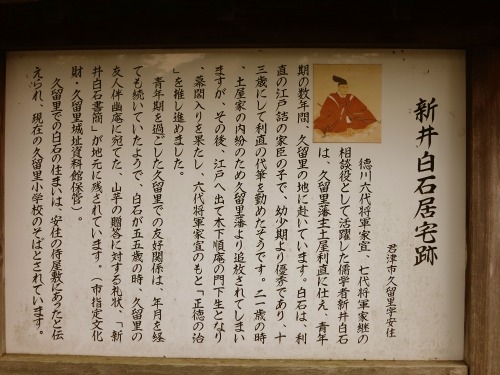 新井白石居宅跡
君津市久留里字安住
徳川六代将軍家宣、七代将軍家継の
相談役として活躍した儒学者新井白石
は、久留里藩主土屋利直に仕え、青年
期の数年間、久留里の地に赴いています。白石は、利
直の江戸詰の家臣の子で、幼少期より優秀であり、十
三歳にして利直の代筆を勤めたそうです。二一歳の時
、土屋家の内紛のため久留里藩より追放されてしまい
ますが、その後、江戸へ出て木下順庵の門下生となり
、幕閣入りを果たし、六代将軍家宣のもと「正徳の治
」を推し進めました。
青年期を過ごした久留里での友好関係は、年月を経
ても続いていたようで、白石が五五歳の時、久留里の
友人伴幽庵に宛てた、山芋の贈答に対する礼状、「新
井白石書簡」が地元に残されています。（市指定文化
財・久留里城址資料館保管）。
久留里での白石の住まいは、安住の侍屋敷にあったと伝
えられ、現在の久留里小学校のそばとされています。